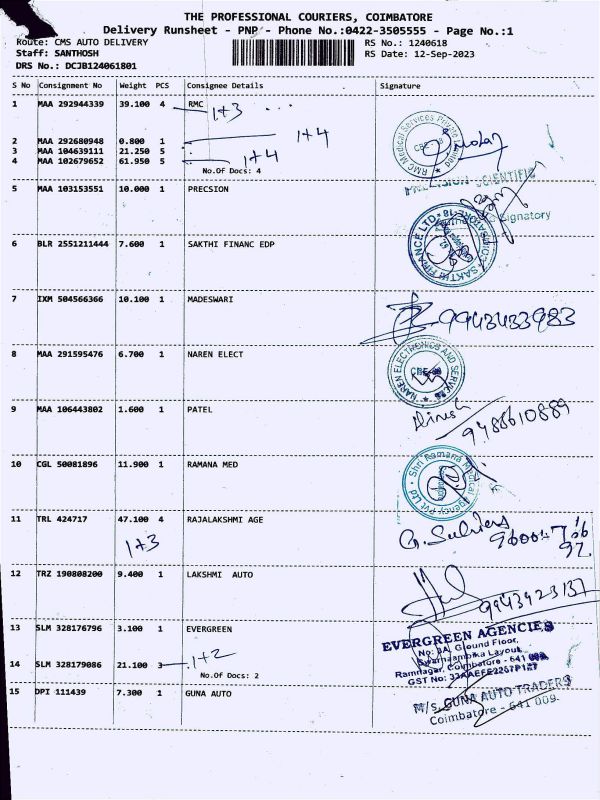 THE PROFESSIONAL COURIERS, COIMBATORE
Delivery Runsheet - PNP - Phone No.:0422-3505555 - Page No.:1
Route: CMS AUTO DELIVERY RS No.: 1240618
Staff: SANTHOSH RS Date: 12-Sep-2023
DRS No.: DCJB124061801
S No Consignment No Weight PCS Consignee Details Signature
1 MAA 292944339 39.100 4 RMC 1+3
2 MAA 292680948 0.800 1 1+4
3 MAA 104639111 21.250 5
4 MAA 102679652 61.950 5 1+4
No.Of Docs: 4
RMC Medical Services Private Limited
CBE-18
PRECISION SCIENTIFIC
5 MAA 103153551 10.000 1 PRECSION
Signatory
6 BLR 2551211444 7.600 1 SAKTHI FINANC EDP
SAKTHI FINANCE LTD. COIMBATORE-18
7 IXM 504566366 10.100 1 MADESWARI
9943433983
8 MAA 291595476 6.700 1 NAREN ELECT
NAREN ELECTRONICS AND SERVICES
9 MAA 106443802 1.600 1 PATEL
Dinesh
9488610889
10 CGL 50081896 11.900 1 RAMANA MED
Shri Ramana Medical Agency Pvt Ltd
11 TRL 424717 47.100 4 RAJALAKSHMI AGE
1+3
12 TRZ 190808200 9.400 1 LAKSHMI AUTO
9943923137
13 SLM 328176796 3.100 1 EVERGREEN
EVERGREEN AGENCIES
No: 3A, Ground Floor,
Swarnaambika Layout,
Ramnagar, Coimbatore - 641 009.
14 SLM 328179086 21.100 3 1+2
No.Of Docs: 2
15 DPI 111439 7.300 1 GUNA AUTO
M/s. GUNA AUTO TRADERS
Coimbatore - 641 009.